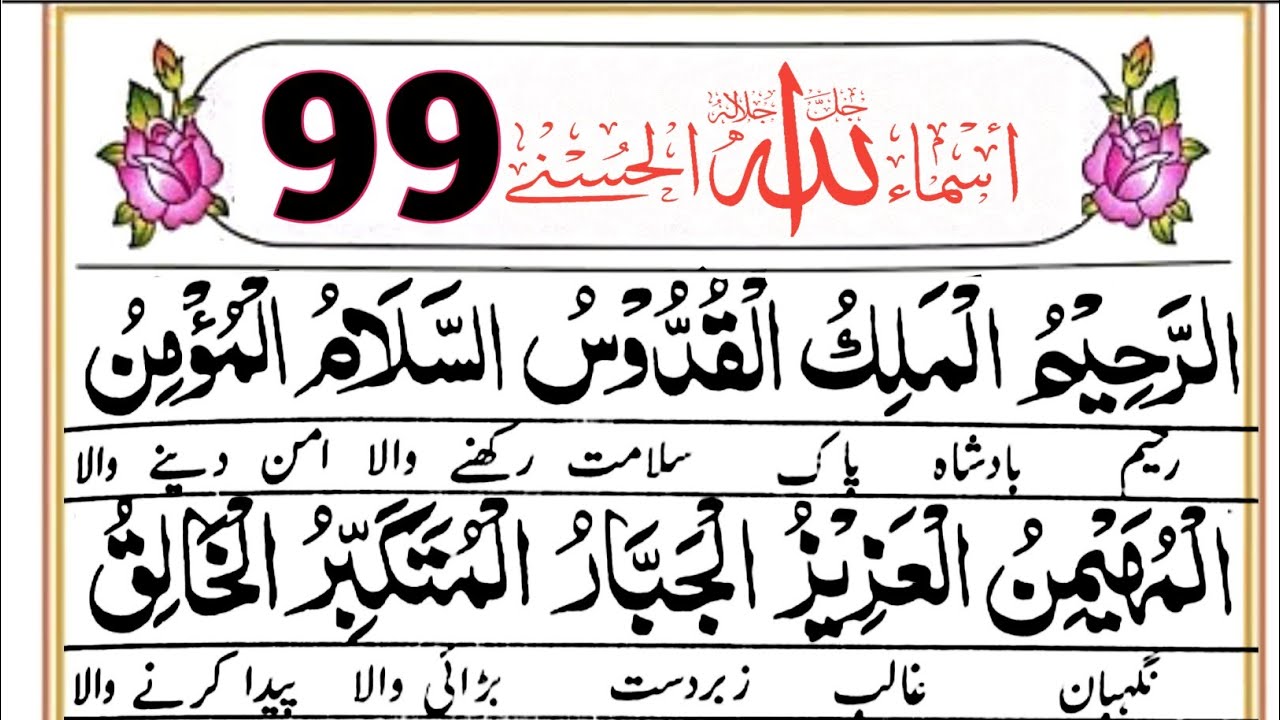 أسماء الله جل جلاله الحسنى 99
الرَّحِيْمُ الْمَلِكُ الْقُدُّوْسُ السَّلَامُ الْمُؤْمِنُ
رحیم بادشاہ پاک سلامت رکھنے والا امن دینے والا
الْمُهَيْمِنُ الْعَزِيْزُ الْجَبَّارُ الْمُتَكَبِّرُ الْخَالِقُ
نگہبان غالب زبردست بڑائی والا پیدا کرنے والا